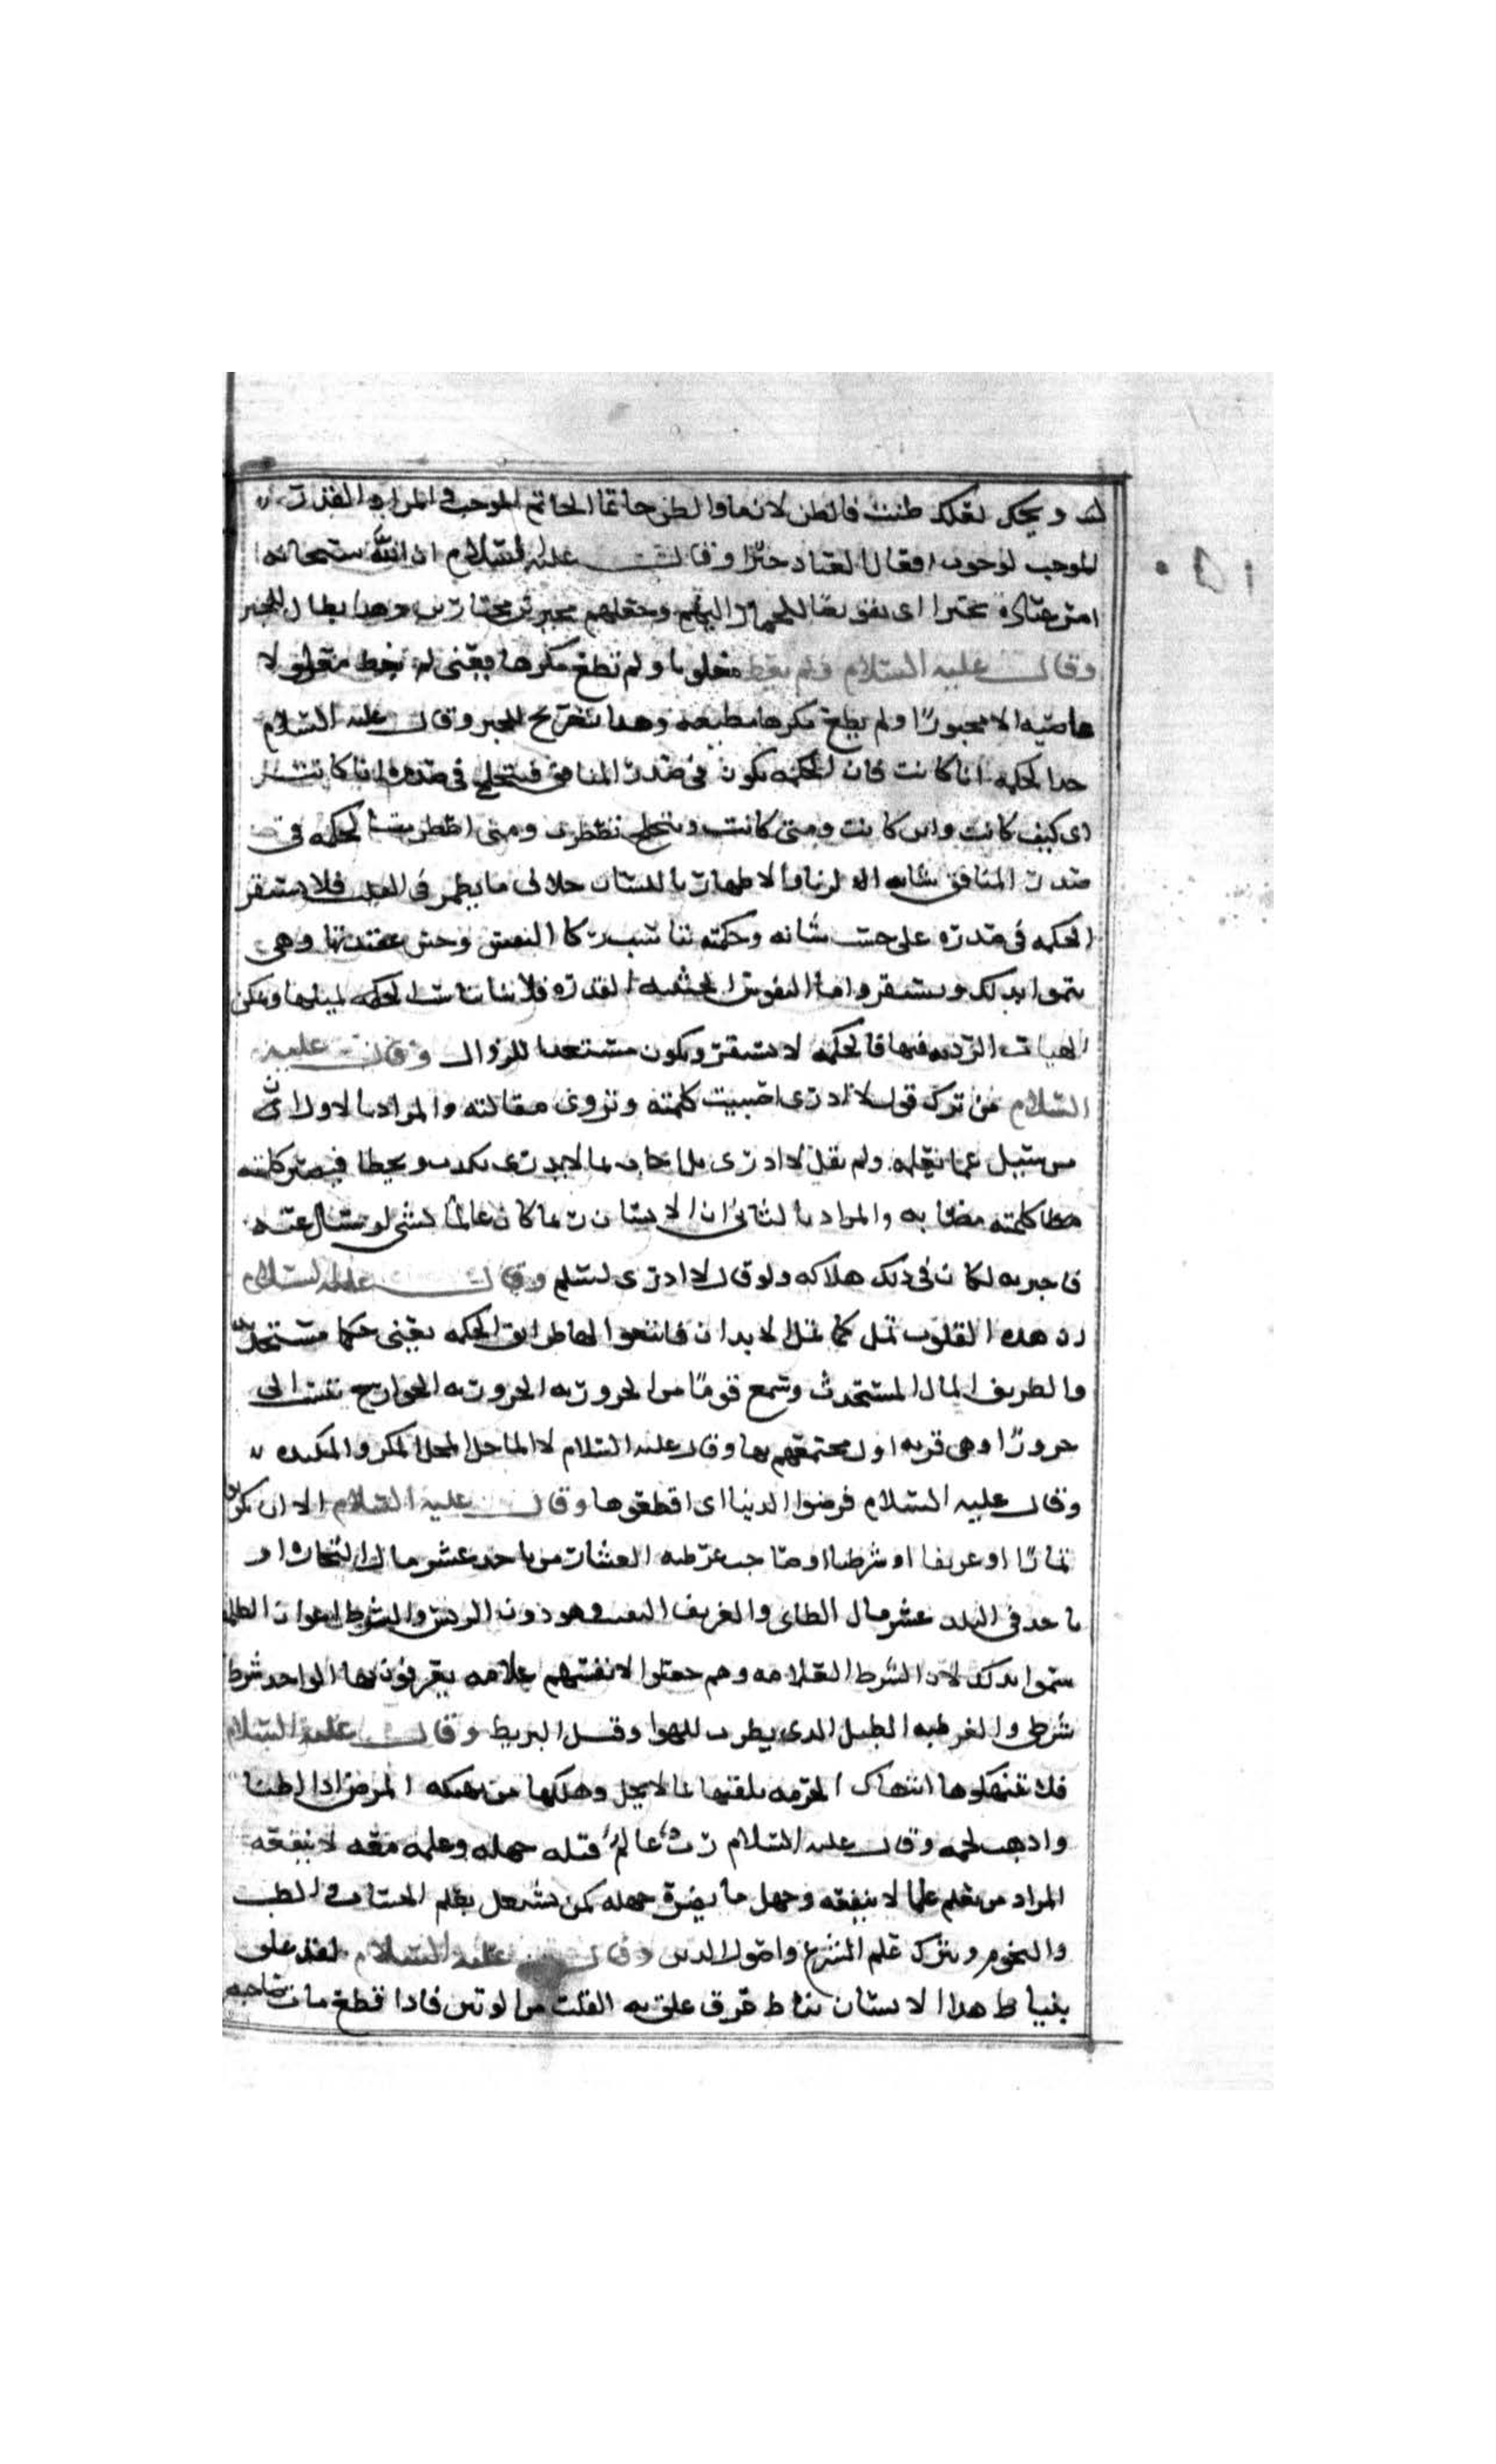 لك ويحك لعلك ظننت فالظن لازما والظن حاتما الحاتم الموجب والمراد القدر
الموجب لوجوب افعال العباد جبرا وقال عليه السلام ان الله سبحانه
امر عباده تخييرا اى تفويضا وجعلهم مخيرين مختارين وهذا ابطال للجبر
وقال عليه السلام ولم يعص مغلوبا ولم يطع مكرها يعنى لم
عاصيه الا مجبورا ولم يطع مكرها مطيعه وهذا تصريح للجبر وقال عليه السلام
خذ الحكمة انا كانت فان الحكمة تكون فى صدر المنافق فتتخلج فى صدره انا كانت
اى كيف كانت واين كانت ومتى كانت وتتخلج تضطرب ومتى اضطربت الحكمة فى
صدر المنافق والاظهار باللسان خلاف ما يظهر فى القلب فلا تستقر
الحكمة فى صدره على حسب شانه وحكمته تناسب زكا النفس وحسن عقيدتها وهى
تنموا بذلك وتستقر واما النفوس الخبيثة القذرة فلا تناسب الحكمة
الهيات الرديه فيها فالحكمه لا تستقر ويكون مستعدا للزوال وقال عليه
السلام من ترك قول لا ادرى اصيبت كلمته وتروى مقالته والمراد بالاول ان
من سئل عما يعلمه ولم يقل لا ادرى بل اجاب بما لا يدرى يكذب ويخطا فيصير كلمته
خطا كلمته مصابه والمراد بالثانى ان الانسان ربما كان عالما بشى لو سئل عنه
فاخبر به لكان فى ذلك هلاكه ولو قال لا ادرى لسلم وقال عليه السلام
ان هذه القلوب تمل كما تمل الابدان فابتغوا لها طرايف الحكمه يعنى حكما مستحدثه
والطريف المال المستحدث وسمع قوما من الحروريه الحروريه الخوارج نسب الى
حرورا وهى قريه اول مجتمعهم بها وقال عليه السلام الا الماحل المحل المكر والمكيده
وقال عليه السلام فرضوا الدنيا اى اقطعوها وقال عليه السلام الا ان يكون
عشارا او عريفا او شرطيا او صاحب عرطبه العشار من ياخذ عشر مال التجار او
ياخذ فى البلد عشر مال والعريف النقيب وهو دون الرييس والشرط اعوان الظلمه
سموا بذلك لان الشرط العلامه وهم جعلوا لانفسهم علامه يعرفون بها الواحد شرط
شرطى والعرطبه الطبل الذى يضرب للهوا وقيل البربط وقال عليه السلام
فلا تنتهكوها انتهاك الحرمه تلقيها بما لا يحل وهتكها من نهكه المرض اذا اضنا
واذهب لحمه وقال عليه السلام رب عالم قتله جهله وعلمه معه لا ينفعه
المراد من تعلم علما لا ينفعه وجهل ما يضره جهله كمن يشتغل بعلم الحساب والطب
والنجوم ويترك علم الشرع واصول الدين وقال عليه السلام لقد علق
بنياط هذا الانسان نياط عرق علق به القلب من الوتين فاذا قطع مات صاحبه